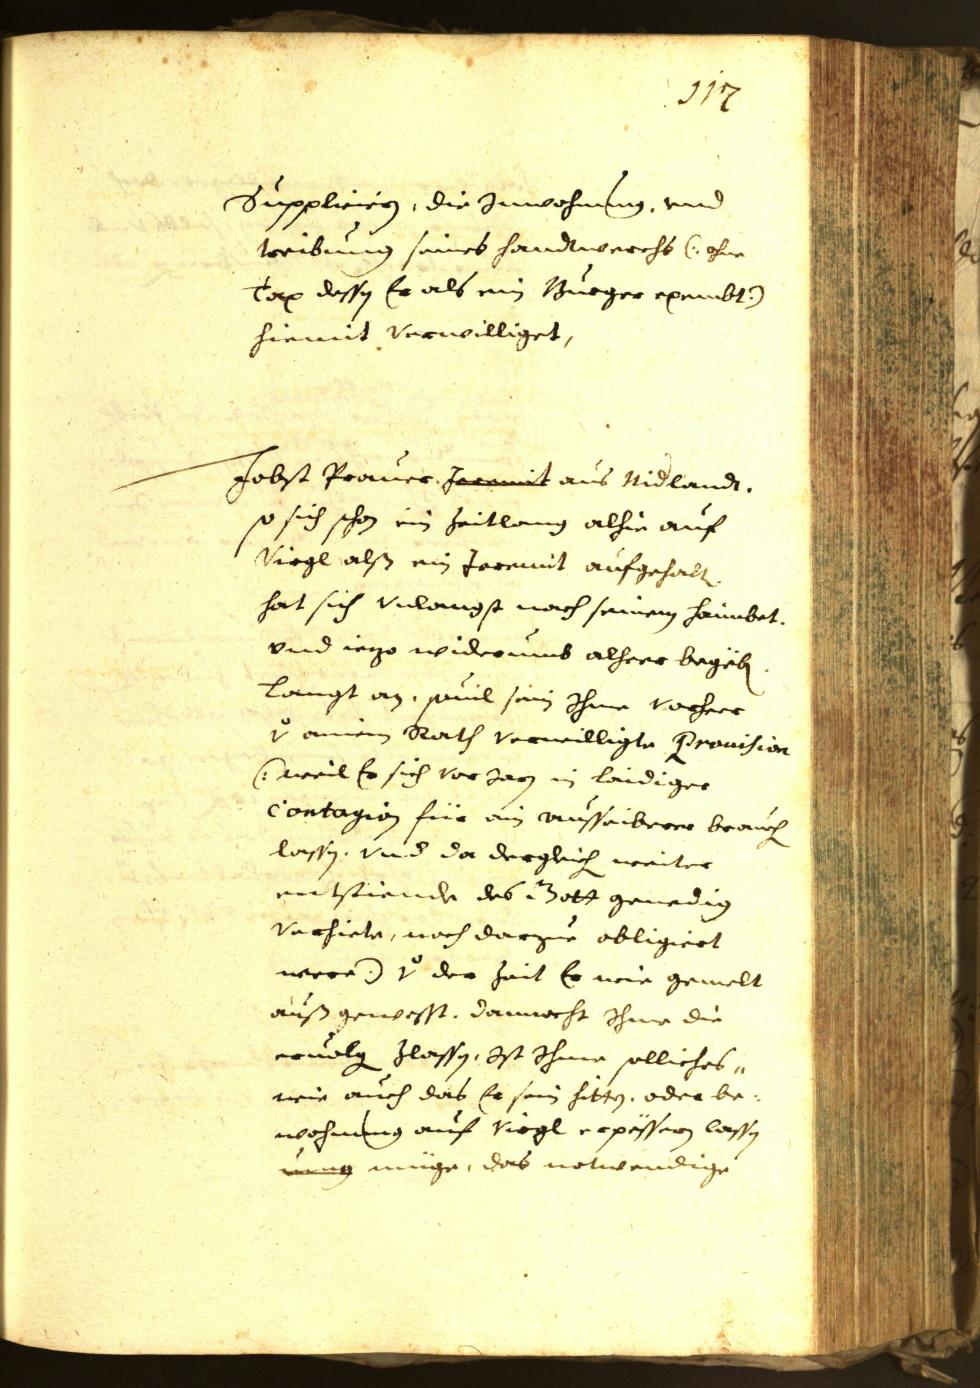 117
Suppliciern, die Inwohnung, und
treibung seines handtwerchs (: ohne
Tax dessen Er als ein Burger exembt:)
hiemit verwilliget,
Jobst Prauer Jeremit aus Nidlandt.
so sich schon ein Zeitlang alhie auf
Virgl alß ein Jeremit aufgehalten.
hat sich vnlangst nach seinem haimbet.
vnd iezo widerumb alheer begeben.
Langt an, souil sein Ihme vorheer
von ainem Rath verwilligte Provision
(: weil Er sich vor Jarn in laidiger
Contagion für ain aussaiberer brauchen
lassen. vnd da dergleichen weiter
entstiende des Gott genedig
verhiete, noch darzue obligiert
were:) von der Zeit Er wie gemelt
auß gewesst. dannocht Ihme die
ervolgen Zlassen. Ist Ihme solliches,,
wie auch das Er sein hitten. oder be:
wohnung auf Virgl erpessern lassen
müge, das notwendige